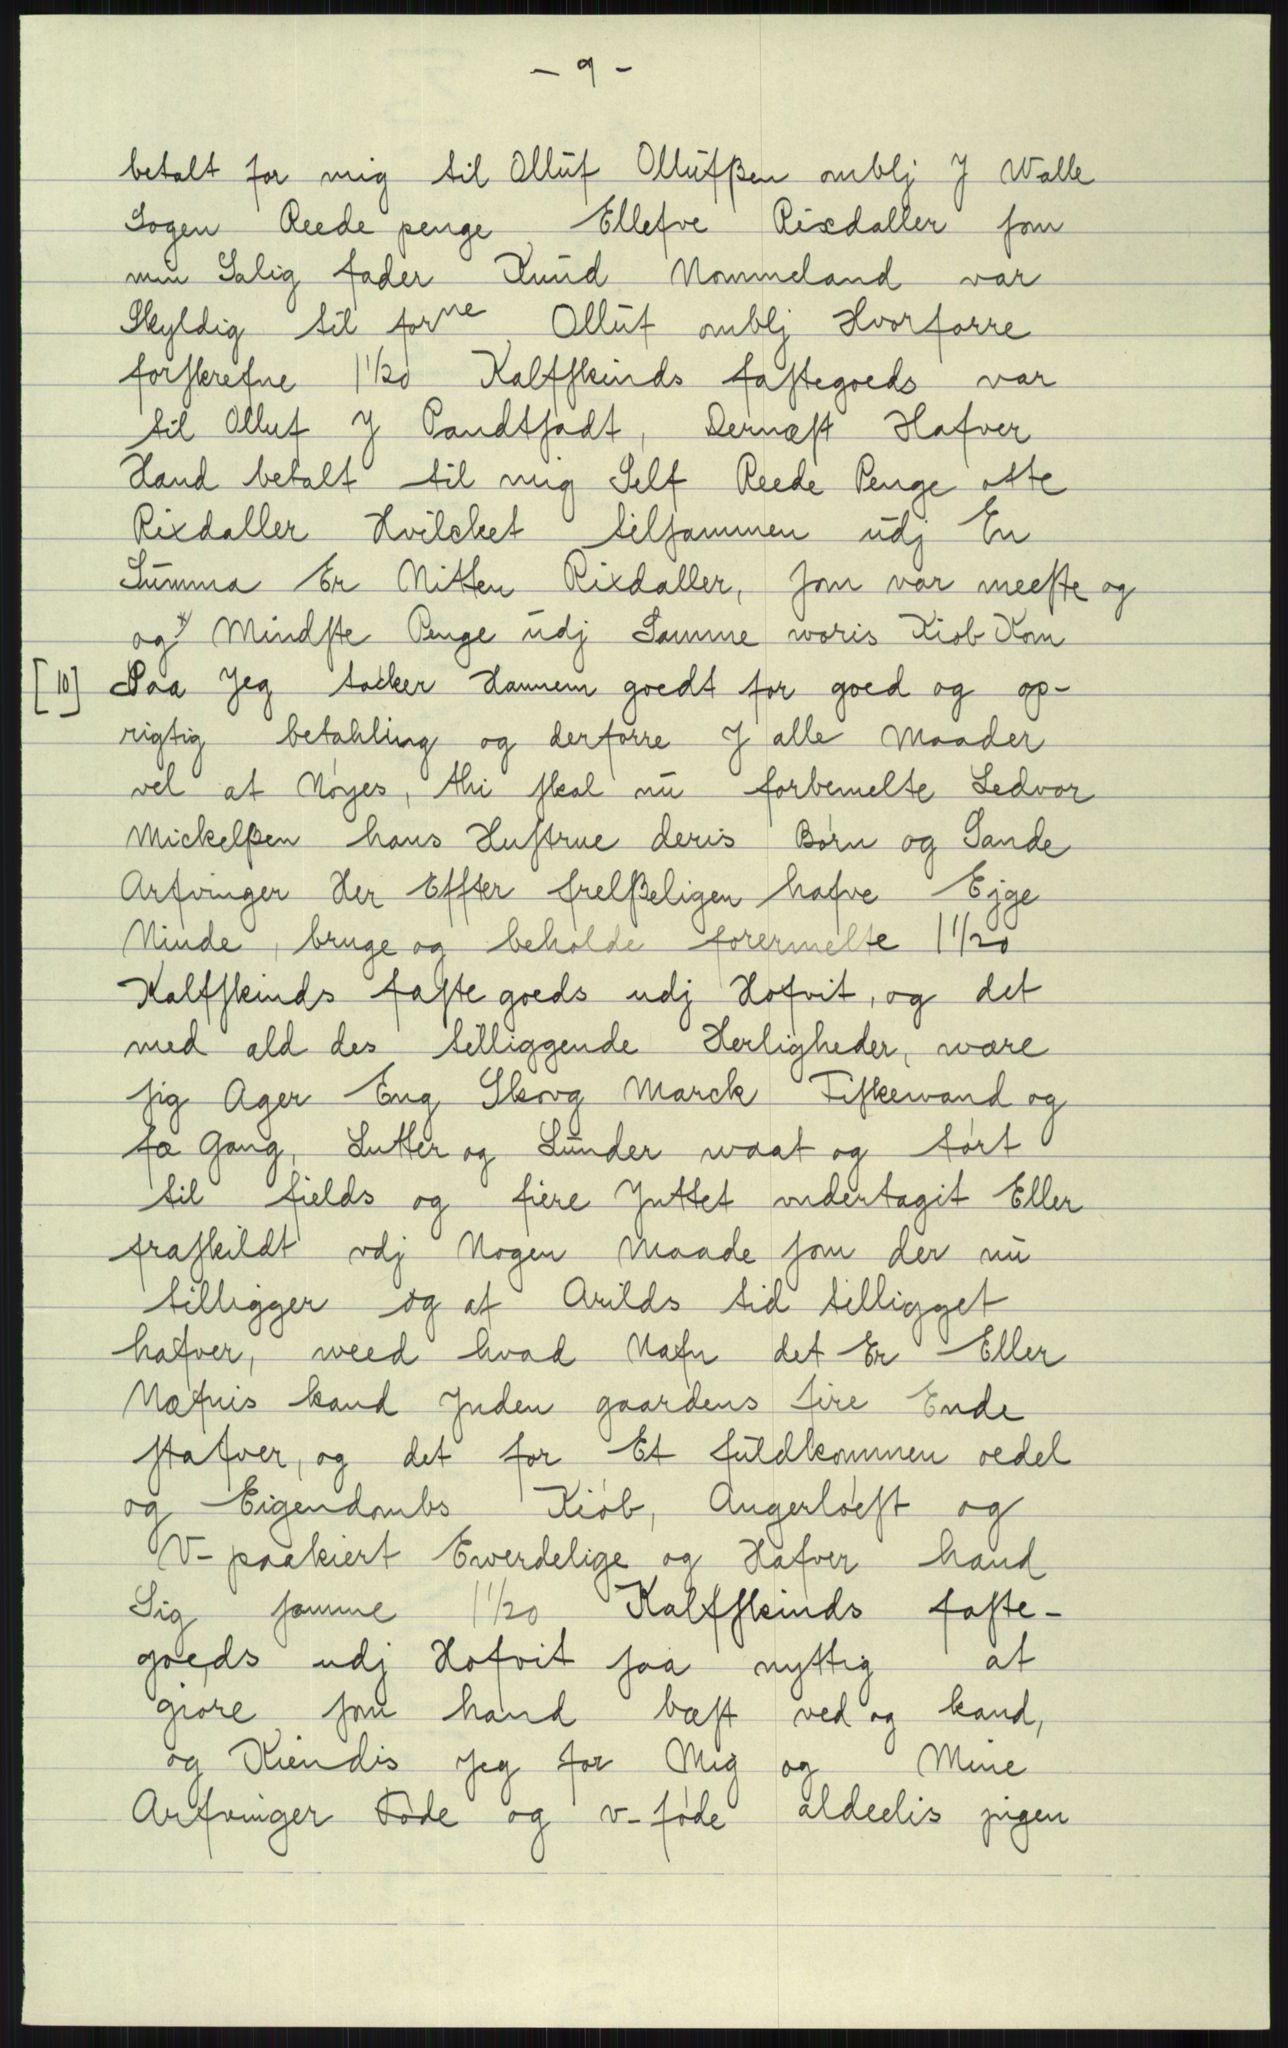 - 9 -
betalt for mig til Olluf Ollufßen omblj J Walle
Sogen Reede penge Ellefve Rixdaller som
min Salig fader Knud Nommeland var
Skyldig til forne Olluf omblj Hvorforre
forskrefne 1 1/20 Kalfskinds fastegoeds var
til Olluf J Pandtsadt, Dernæst Hafver
Hand betalt til mig Self Reede Penge otte
Rixdaller Hvilcket tilsammen udj En
Summa Er Nitten Rixdaller, som var meeste og
og* Mindste Penge udj Samme woris Kiøb Kom
[10] Saa Jeg tacker Hannem goedt for goed og op-
rigtig betahling og derforre J alle Maader
vel at Nøyes, thi skal nu forbemelte Sedvor
Mickelßen hans Hustrue deris Børn og Sande
Arfvinger Her Effter frelßeligen hafve Ejge
Niude, bruge og beholde forermelte 1 1/20
Kalfskinds faste goeds udj Hofvit, og det
med ald des tilliggende Herligheder, være
sig Ager Eng Skovg Marck Fiskevand og
fæ Gang, Lutter og Lunder waat og tørt
til fields og fiere Jnttet vndertagit Eller
fraskildt vdj Nogen Maade som der nu
tilligger og af Arilds tid tilligget
hafver, weed hvad Nafn det Er Eller
Næfnis kand Jnden gaardens fire Ende
stafver, og det for Et fuldkommen oedel
og Eigendombs Kiøb, Angerløest og
V-paakiert Ewerdelige og Hafver hand
Sig samme 1 1/20 Kalfskinds faste-
goeds udj Hofvit saa nyttig at
giøre som hand bæst ved og kand,
og Kiendis Jeg for Mig og Mine
Arfvinger Føde og v-føde aldeelis jngen